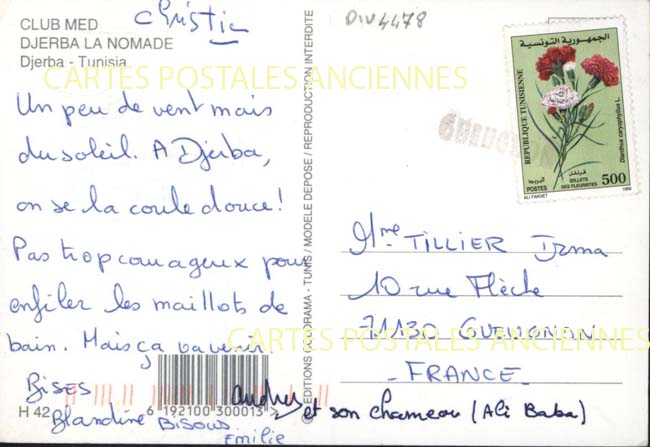 Christie
DIV4478
CLUB MED
DJERBA LA NOMADE
Djerba - Tunisia
CARTES POSTALES ANCIENNES
Un peu de vent mais
du soleil. A Djerba,
on se la coule douce!
Pas trop courageux pour
enfiler les maillots de
bain. Mais ça va venir.
Bises
Blandine Bisous
Emilie
andré et son chameau (Ali Baba)
H 42
6 192100 300013
© EDITIONS - TUNIS / MODELE DEPOSE / REPRODUCTION INTERDITE
الجمهورية التونسية
REPUBLIQUE TUNISIENNE
Dianthus caryophyllus L.
قرنفل
البريد
POSTES
ŒILLETS
DES FLEURISTES
500
ALI FAKHET
1999
GUEUGNON
Mme TILLIER Irma
10 rue Flèche
71130 GUEUGNON
CARTES POSTALES ANCIENNES
- FRANCE -